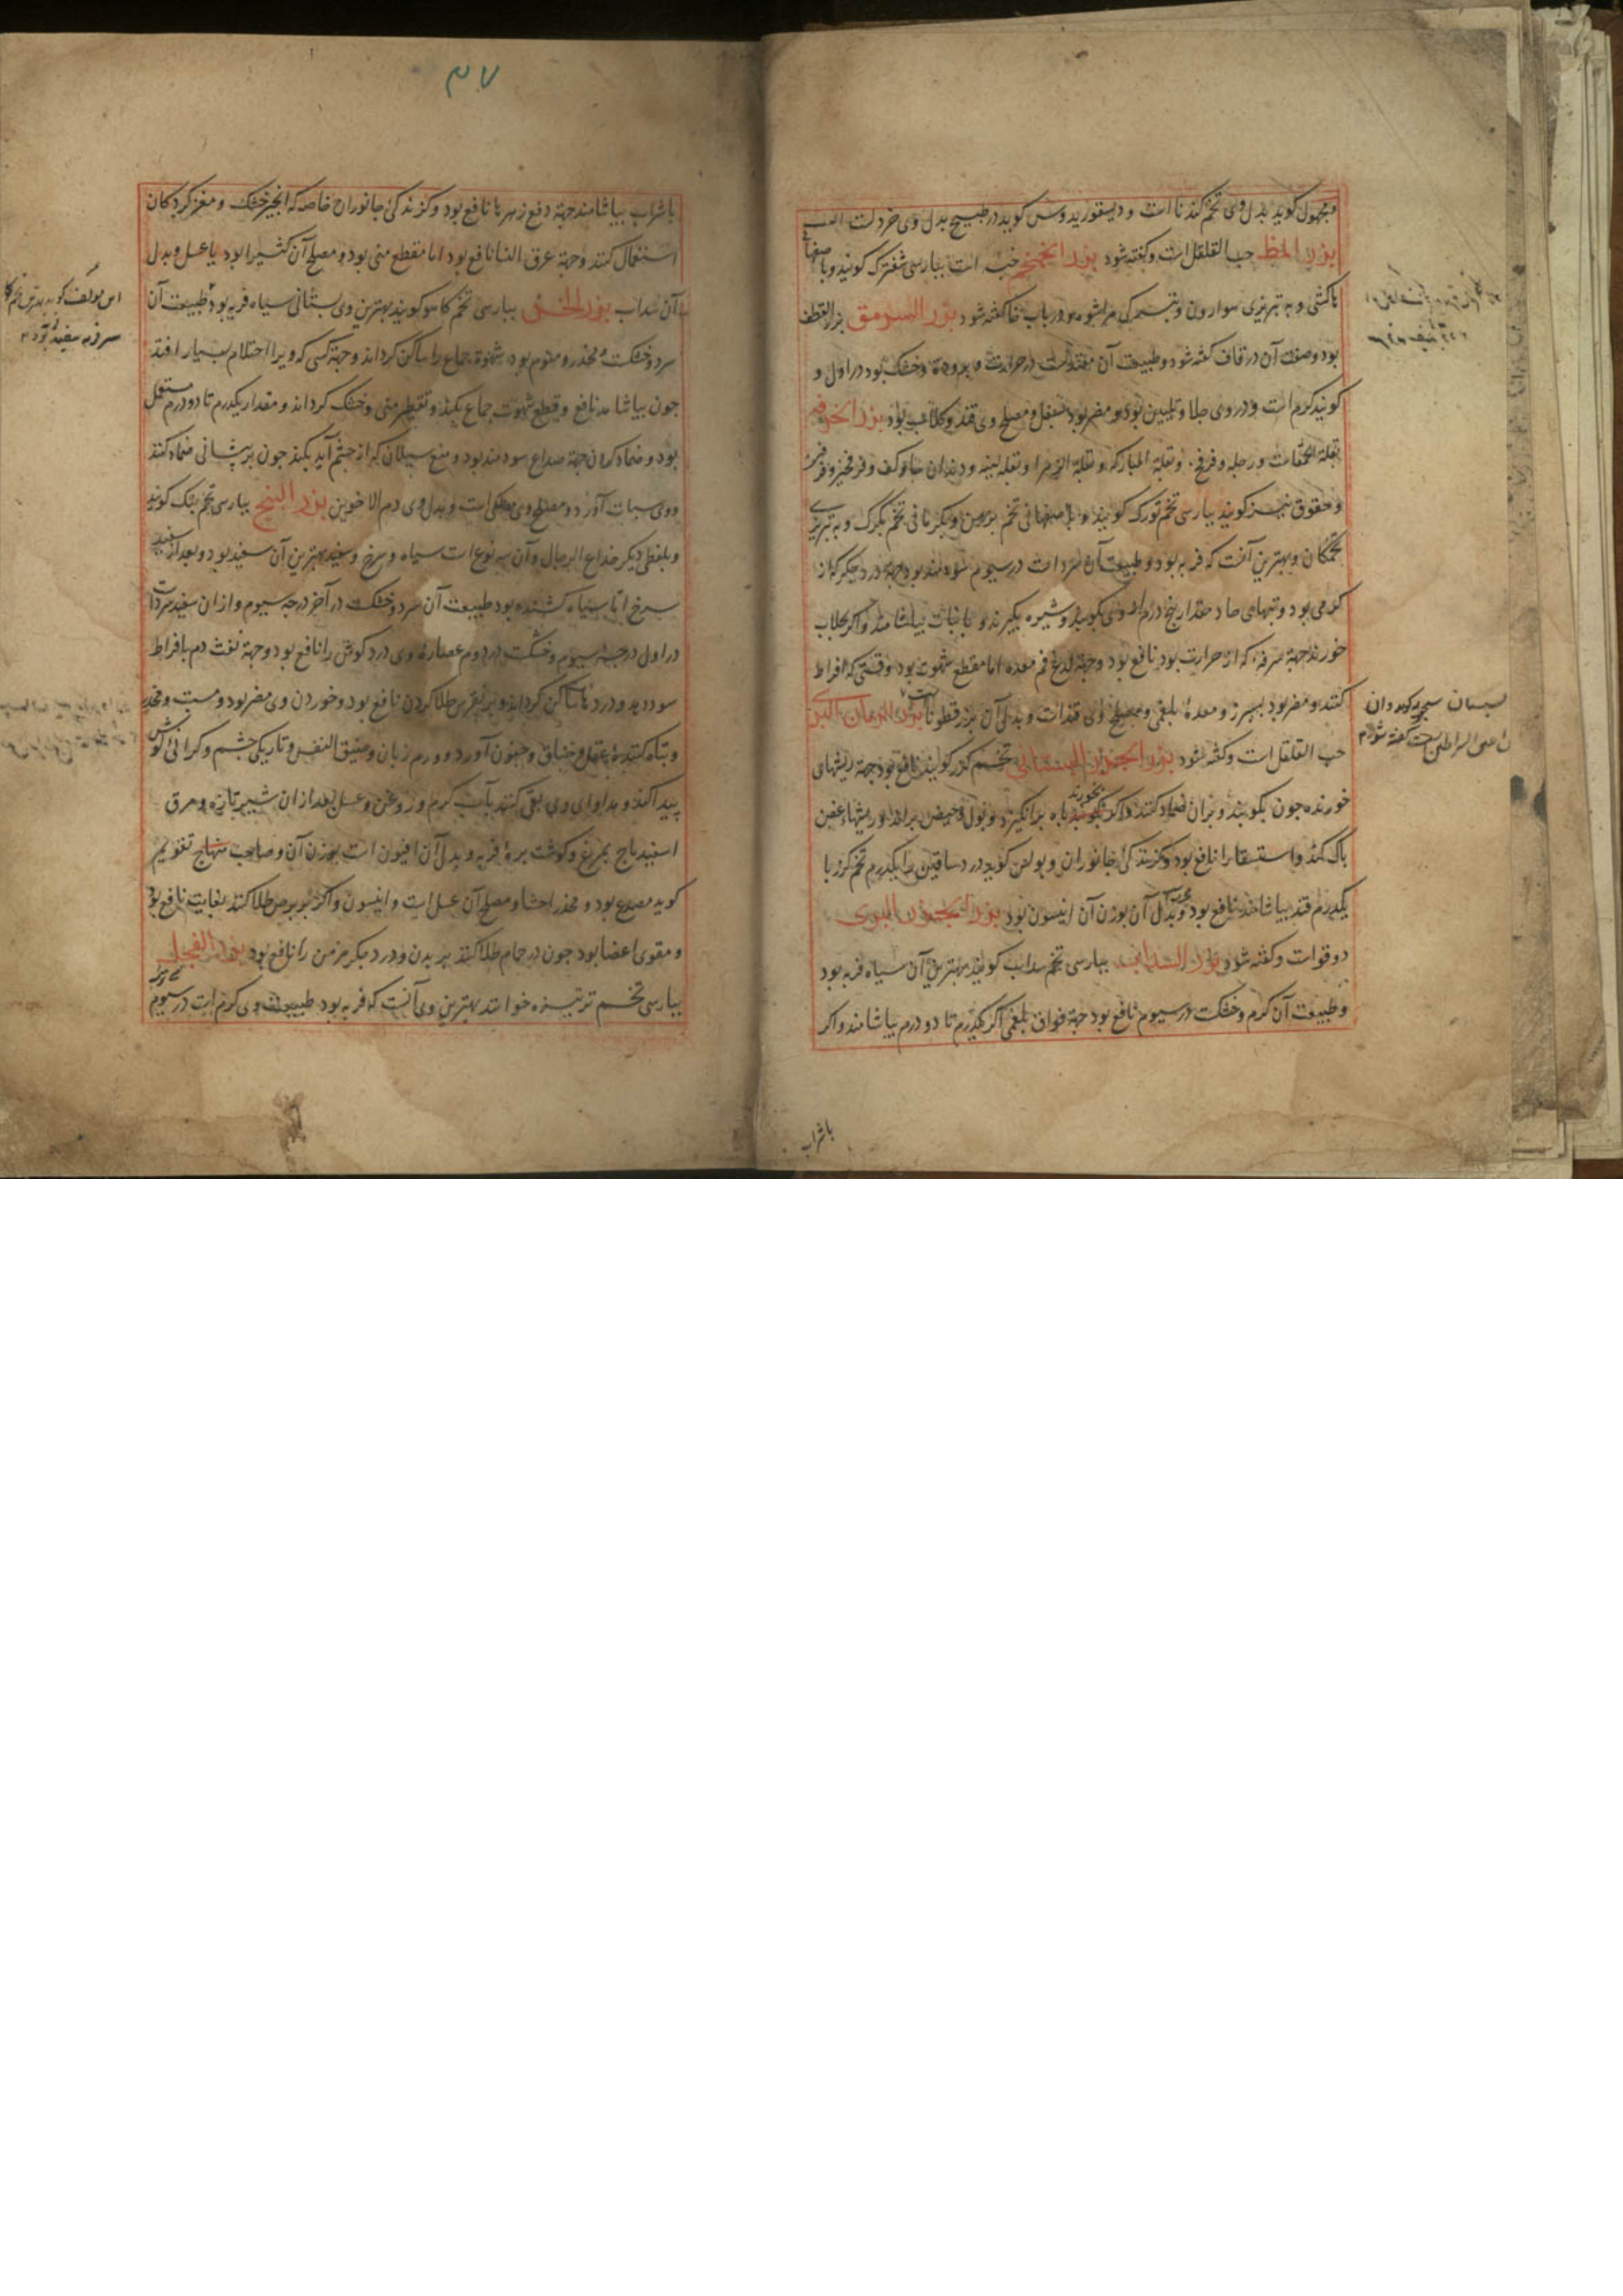 ومجهول کوید بدل وی تخم کندناست و دیسقوریدوس کوید در طبیخ بدل وی خردلست
بزر المظ حب القلقل است و کفته شود بزر الخمخم خب است بپارسی شفترک کویند و باصفهانی
باکشی و به تبریزی سوارون و در باب خا کفته شود بزر السرمق بزر القطف
بود و صفت آن در قاف کفته شود و طبیعت آن معتدلست در حرارت و برودت و خشک بود در اول و
کویند کرم است و در وی جلا و تلیین بود و مضر بود و مصلح وی قند و کلاب بود بزر الخرفه
بقلة الحمقاست و رجله و فرفخ و بقلة المبارکه و بقلة الزهرا و بقله لینه و
کویند بپارسی تخم تورک کویند و باصفهانی تخم برهن و بکرمانی تخم بکرک و به تبریزی
تخمکان و بهترین آنست که فربه بود و طبیعت آن سرد است در سیوم سودمند بود جهة درد جکر که از
کرمی بود و تبهای حاد مقدار پنج درم از وی بکوبند و شیره بکیرند و با نبات بیاشامند و اکر بجلاب
خورند جهة سرفه که از حرارت بود نافع بود و جهة لدغ فم معده اما مقطع شهوت بود وقتی که افراط
کنند و مضر بود بسپرز و معدهٔ بلغمی و مصلح وی قندست و بدل آن بزرقطوناست بزر الرمان البری
حب القلقل است و کفته شود بزر الجزر البستانی تخم کزر کویند نافع بود جهة ریشهای
خورنده چون بکوبند و بران ضماد کنند و اکر بخورند باه برانکیزد و بول و حیض براند و ریشهاء عفن
پاک کند و استسقا را نافع بود و کزندکی جانوران و بولس کوید درد ساقین را یکدرم تخم کزر با
یکدرم قند بیاشامند نافع بود مجرب و بدل آن بوزن آن انیسون بود بزر الجزر البری
دوقوست و کفته شود بزر السداب بپارسی تخم سداب کویند بهترین آن سیاه فربه بود
و طبیعت آن کرم و خشکست در سیوم نافع بود جهة فواق بلغمی اکر یکدرم تا دو درم بیاشامند و اکر
باشراب
۴۷
باشراب بیاشامند جهة دفع زهرها نافع بود و کزندکی جانوران خاصه که انجیر خشک و مغز کردکان
استعمال کنند و جهة عرق النسا نافع بود اما مقطع منی بود و مصلح آن کثیرا بود یا عسل و بدل
آن سداب بزر الخس بپارسی تخم کاهو کویند بهترین وی بستانی سیاه فربه بود و طبیعت آن
سرد و خشکست و مخدر و منوم بود و شهوة جماع را ساکن کرداند و جهة کسی که ویرا احتلام بسیار افتد
چون بیاشامد نافع و قطع شهوت جماع بکند و تقطیر منی و خشک کرداند و مقدار یکدرم تا دو درم مستعمل
بود و ضماد کردن جهة صداع سودمند بود و منع سیلان که از چشم آید بکند چون بر پیشانی ضماد کنند
و وی سبات آورد و مصلح وی مصطکی است و بدل وی دم الاخوین بزر البنج بپارسی تخم بنک کویند
و بلفظی دیکر خداع الرجال و آن سه نوع است سیاه و سرخ و سفید بهترین آن سفید بود و بعد از سفید
سرخ اما سیاه کشنده بود طبیعت آن سرد و خشکست در آخر درجه سیوم و از ان سفید سردست
در اول درجه سیوم و خشکست در دوم عصاره وی درد کوش را نافع بود و جهة نفث دم بافراط
سود دهد و دردها ساکن کرداند و بر نقرس طلا کردن نافع بود و خوردن وی مضر بود و مسبت و مخدر
و تباه کنندهٔ عقل و خناق و جنون آورد و ورم زبان و ضیق النفس و تاریکی چشم و کرانی کوش
پیدا کند و مداوای وی بقی کنند بآب کرم و روغن و عسل بعد از ان شیر تازه و مرق
اسفیدباج بمرغ و کوشت برهٔ فربه و بدل آن افیون است بوزن آن و صاحب منهاج تقویم
کوید مصدع بود و مخدر احشا و مصلح آن عسل است و انیسون و اکر بر برص طلا کنند بغایت نافع بود
و مقوی اعضا بود چون در حمام طلا کنند بر بدن و درد جکر مزمن را نافع بود بزر الفجل
بپارسی تخم ترب خوانند بهترین وی آنست که فربه بود طبیعت وی کرم است در سیوم